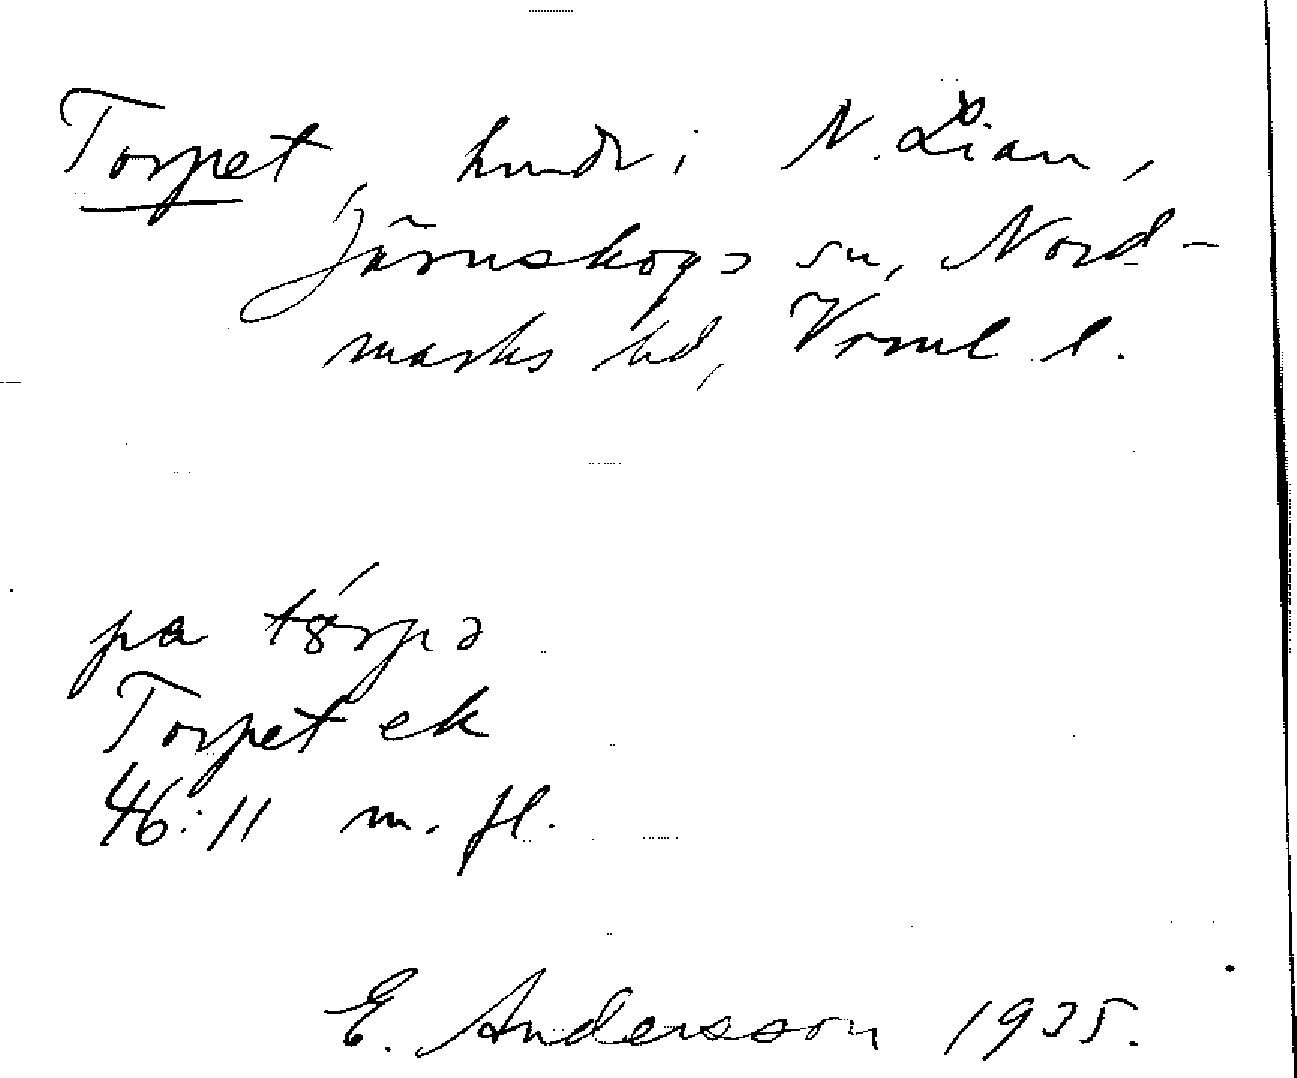 Torpet, hmdr i N. Lian,
Järnskogs sn, Nord-
marks hd, Vrml l.
på tǿrpə
Torpet ek
46:11 m. fl.
E. Andersson 1935.